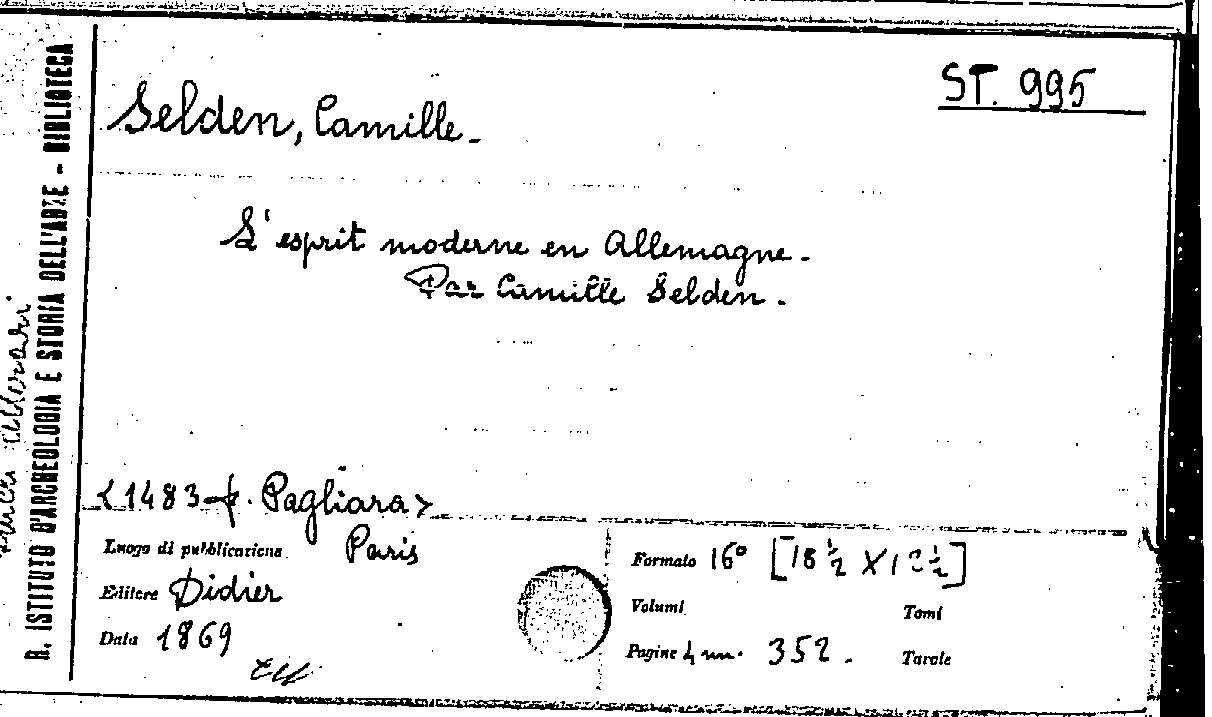 ST. 995
Selden, Camille.-
L'esprit moderne en Allemagne.-
Par Camille Selden.-
<1483-f. Pagliara>
Luogo di pubblicazione Paris
Editore Didier
Data 1869
Formato 16° [18 ½ X 1 ½]
Volumi
Tomi
Pagine 4 nn. 352.
Tavole
R. ISTITUTO D'ARCHEOLOGIA E STORIA DELL'ARTE - BIBLIOTECA